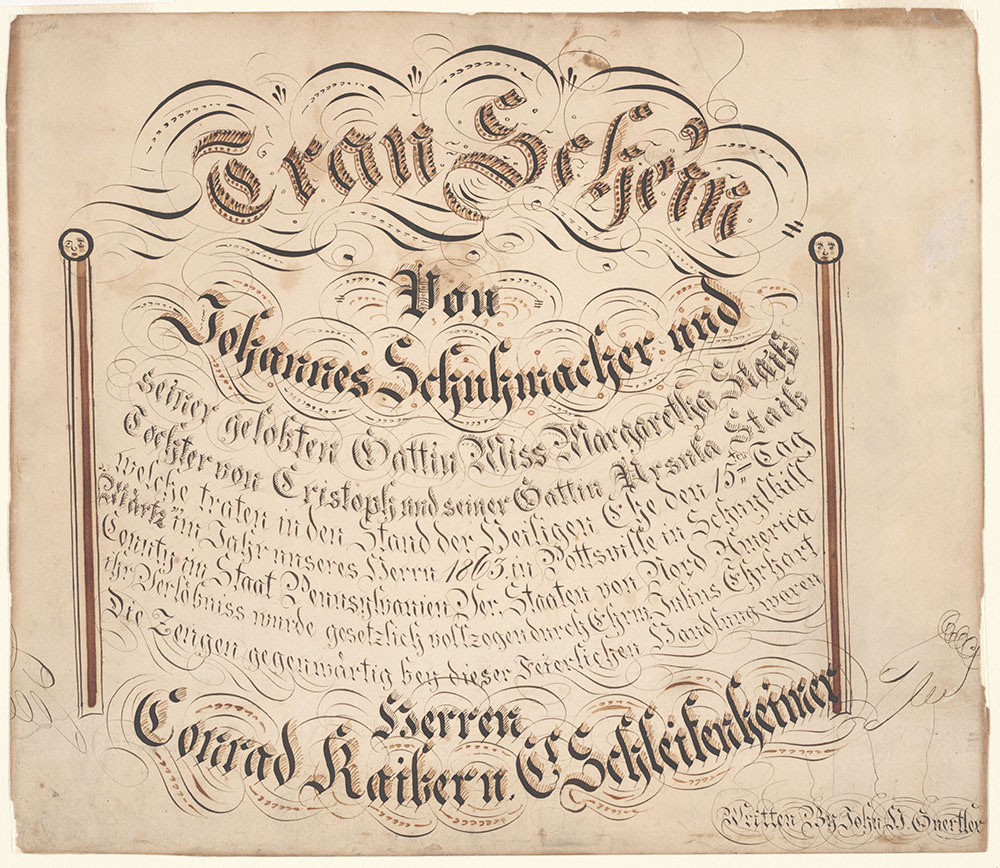 Trau Schein
Von
Johannes Schuhmacher und
seiner gelobten Gattin Miss Margaretha Staib
Tochter von Cristoph und seiner Gattin Ursula Staib
welche traten in den Stand der Heiligen Ehe den 15ten Tag
Märtz im Jahr unseres Herrn 1863. in Pottsville in Schuylkill
County im Staat Pennsylvanien Ver. Staaten von Nord America
ihr Verlöbniss wurde gesetzlich vollzogen durch Ehrw. Julius Ehrhart.
Die Zeugen gegenwärtig bey dieser Feierlichen Handlung waren
Herren
Conrad Kaiber u. C. Schleifenheimer
Written By John H. Guertler